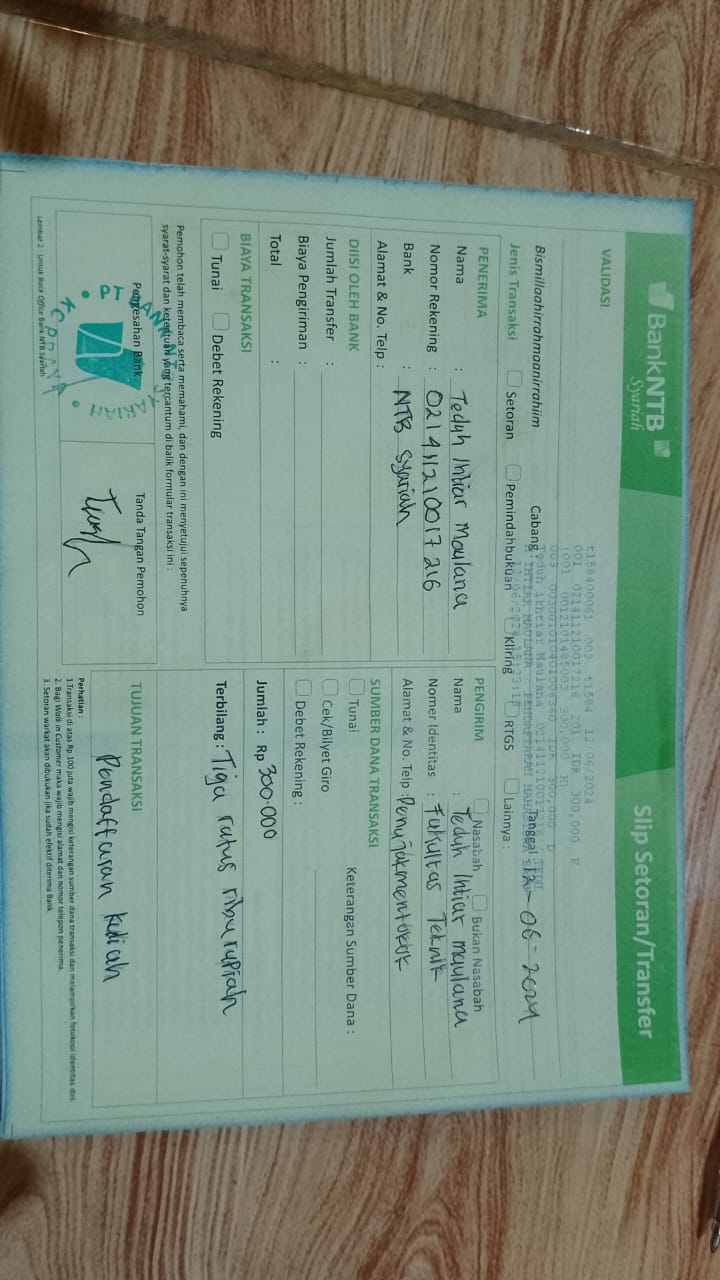 BankNTB
Syariah
Slip Setoran/Transfer
VALIDASI
t158400061 003 t1584 12/06/2024
001 021411210017216 201 IDR 300,000 K
Bismillaahirrahmaanirrahiim
Cabang :
Tanggal : 12-06-2024
Jenis Transaksi
Setoran
Pemindahbukuan
Kliring
RTGS
Lainnya :
PENERIMA
Nama : Teduh Ihtiar Maulana
Nomor Rekening : 021411210017216
Bank : NTB Syariah
Alamat & No. Telp :
PENGIRIM
Nasabah
Bukan Nasabah
Nama : Teduh Ihtiar maulana
Nomer Identitas : Fakultas Teknik
Alamat & No. Telp :
DIISI OLEH BANK
Jumlah Transfer :
Biaya Pengiriman :
Total :
SUMBER DANA TRANSAKSI
Tunai
Keterangan Sumber Dana :
Cek/Bilyet Giro
Debet Rekening :
BIAYA TRANSAKSI
Tunai
Debet Rekening
Jumlah : Rp 300.000
Terbilang : Tiga ratus ribu rupiah
Pemohon telah membaca serta memahami, dan dengan ini menyetujui sepenuhnya
syarat-syarat dan ketentuan yang tercantum di balik formular transaksi ini :
Pengesahan Bank
Tanda Tangan Pemohon
TUJUAN TRANSAKSI
Pendaftaran kuliah
Perhatian :
1.Transaksi di atas Rp 100 juta wajib mengisi keterangan sumber dana transaksi dan melampirkan fotokopi identitas diri.
2. Bagi Walk in Customer maka wajib mengisi alamat dan nomor telepon penerima.
3. Setoran warkat akan dibukukan jika sudah efektif diterima Bank
Lembar 2 : Untuk Back Office Bank NTB Syariah